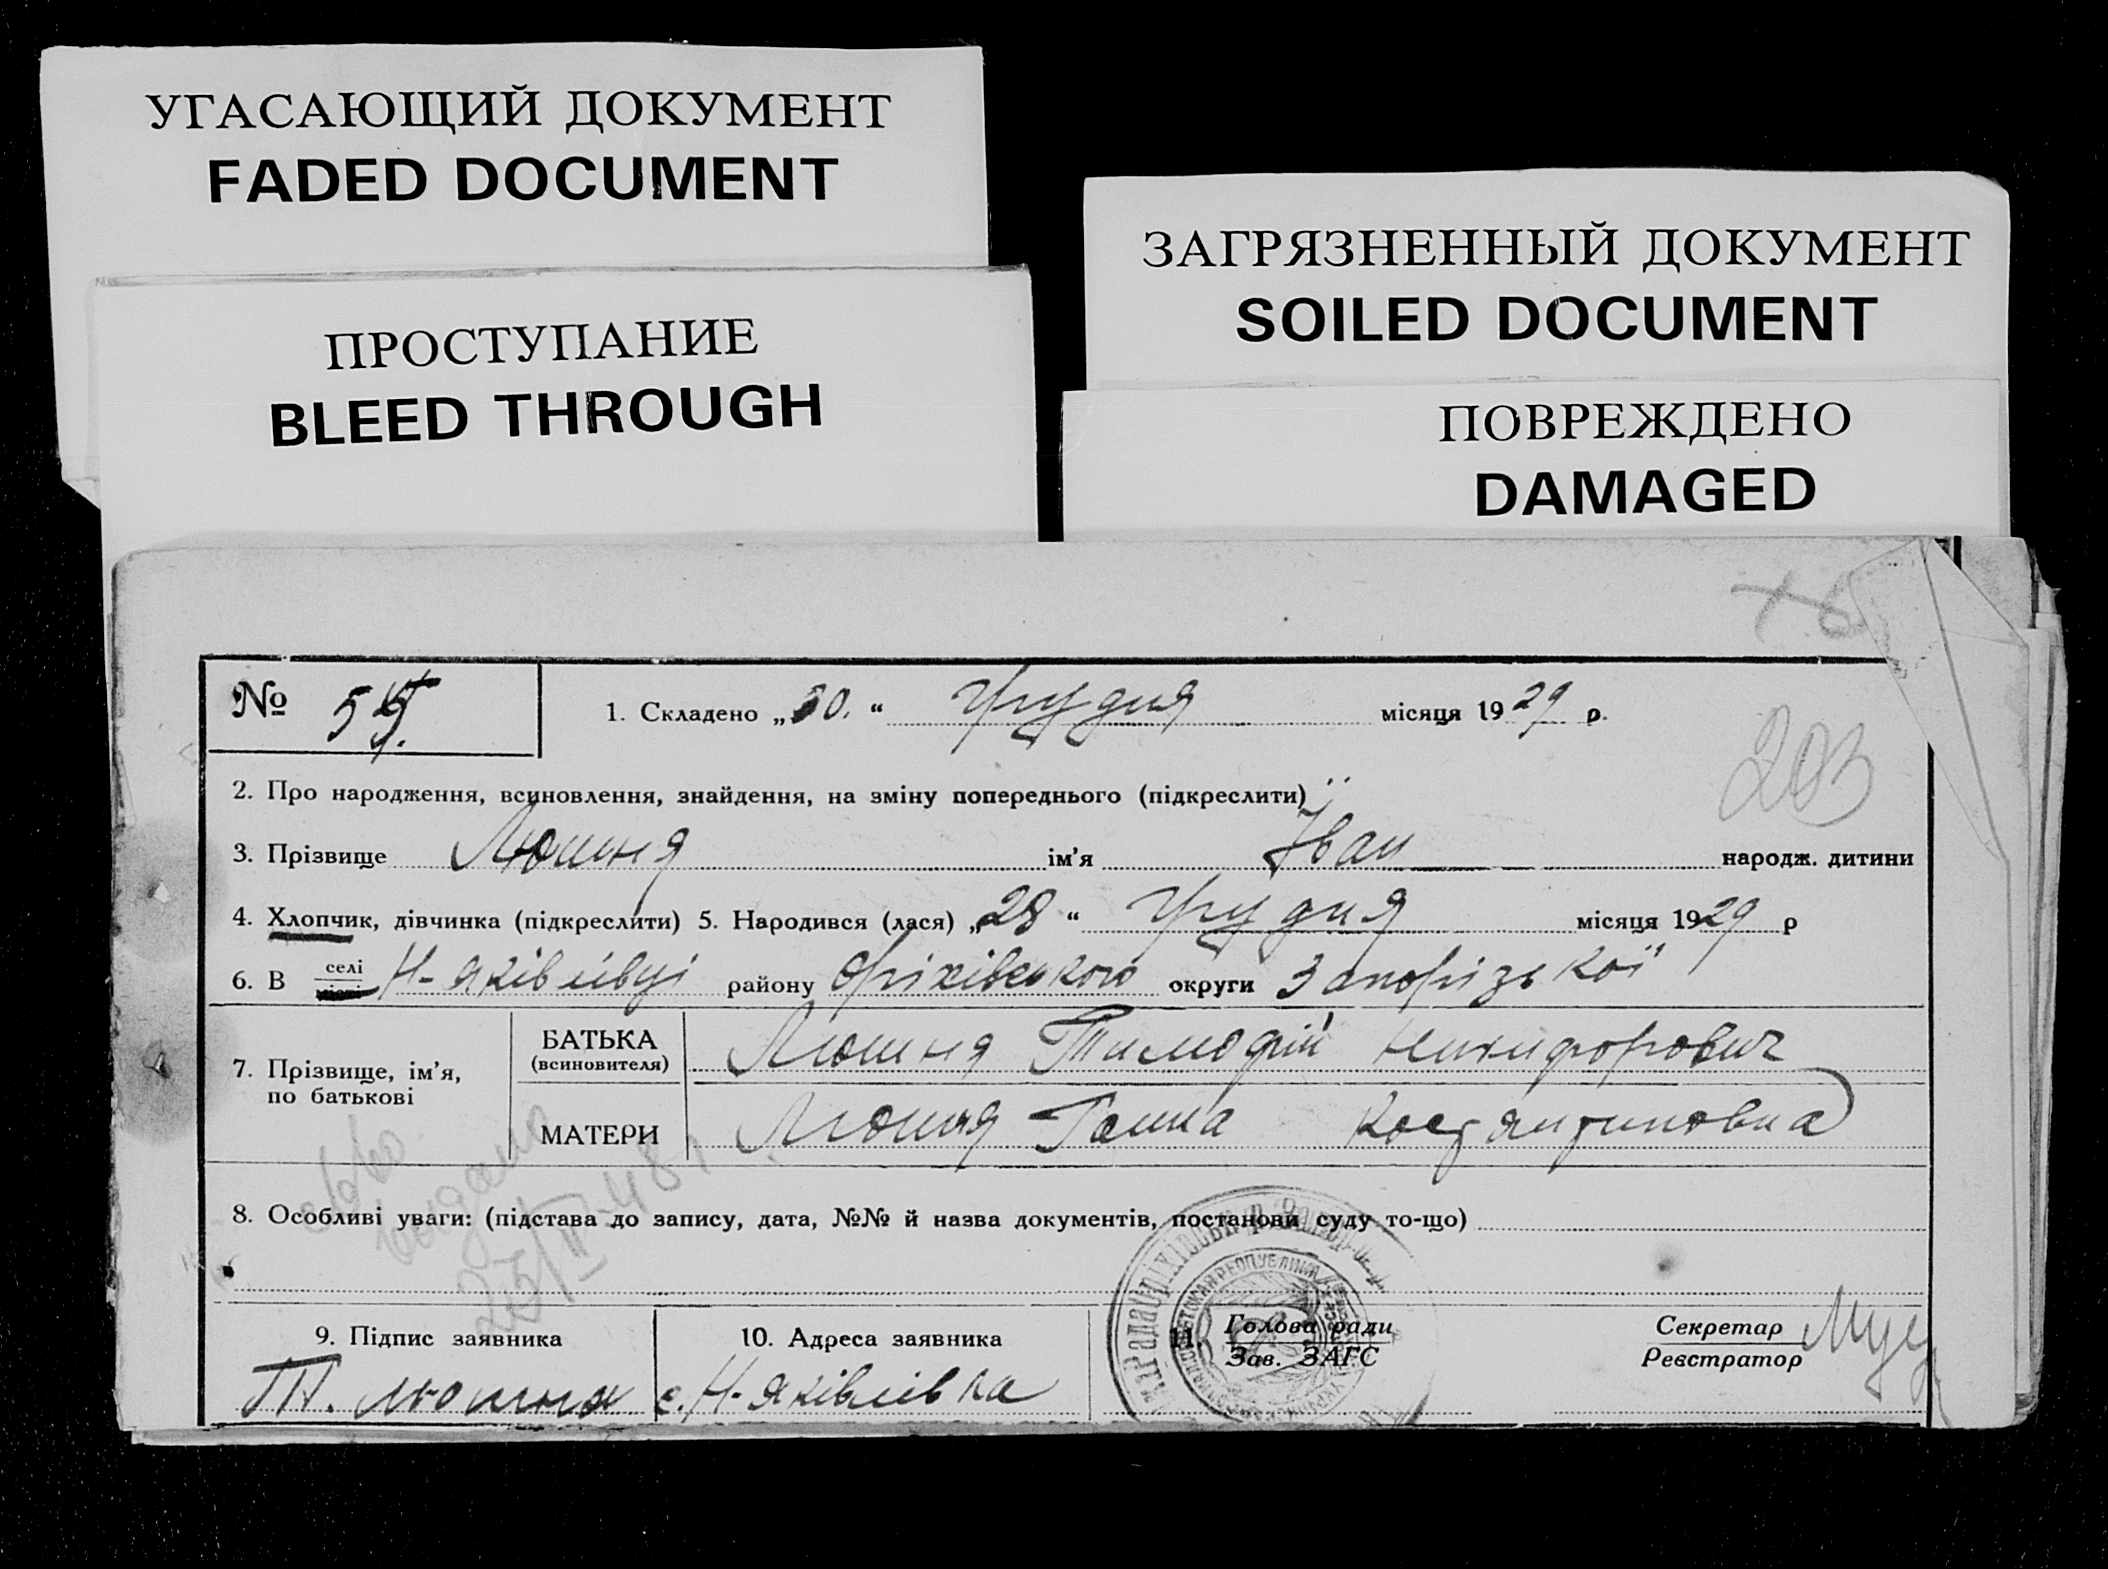 УГАСАЮЩИЙ ДОКУМЕНТ
FADED DOCUMENT
ПРОСТУПАНИЕ
BLEED THROUGH
ЗАГРЯЗНЕННЫЙ ДОКУМЕНТ
SOILED DOCUMENT
ПОВРЕЖДЕНО
DAMAGED
№ 1. Складено „30.“ Грудня місяця 1929 р.
203
2. Про народження, всиновлення, знайдення, на зміну попереднього (підкреслити)
3. Прізвище Люшня ім'я Іван народж. дитини
4. Хлопчик, дівчинка (підкреслити) 5. Народився (лася) „28“ Грудня місяця 1929 р
6. В селі Н-Яківлівці району Оріхівського округи Запорізької
7. Прізвище, ім'я, по батькові
БАТЬКА (всиновителя) Люшня Тимофій Никифорович
МАТЕРИ Люшня Ганна Костянтиновна
видано
8. Особливі уваги: (підстава до запису, дата, №№ й назва документів, постанови суду то-що)
9. Підпис заявника 10. Адреса заявника 11. Голова ради Секретар
Зав. ЗАГС Реєстратор
Т. Люшня с. Н-Яківлівка